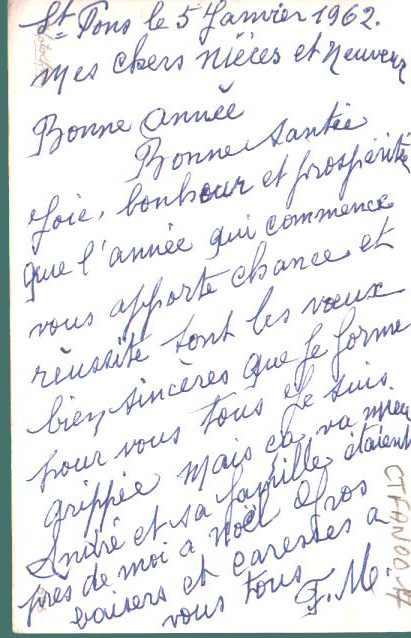 St Pons le 5 Janvier 1962.
Mes chers Nièces et neuveux
Bonne année
Bonne Santée
Joie, bonheur et prospérité
que l'année qui commence
vous apporte chance et
réussite sont les vœux
bien sincères que je forme
pour vous tous Je suis
grippée mais ça va mieu
André et sa famille étaient
près de moi a noël Gros
baisers et caresses a
vous tous
T. M.
CTFAN00